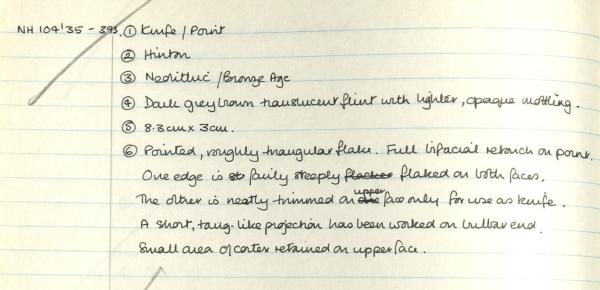 NH 104'35 - 393. ① Knife / Point
② Hinton
③ Neolithic / Bronze Age
④ Dark grey brown translucent flint with lighter, opaque mottling.
⑤ 8.3cm x 3cm.
⑥ Pointed, roughly triangular flake. Full bifacial retouch on point.
One edge is fairly steeply flaked on both faces.
The other is neatly trimmed on upper face only for use as knife.
A short, tang-like projection has been worked on bulbar end.
Small area of cortex retained on upper face.